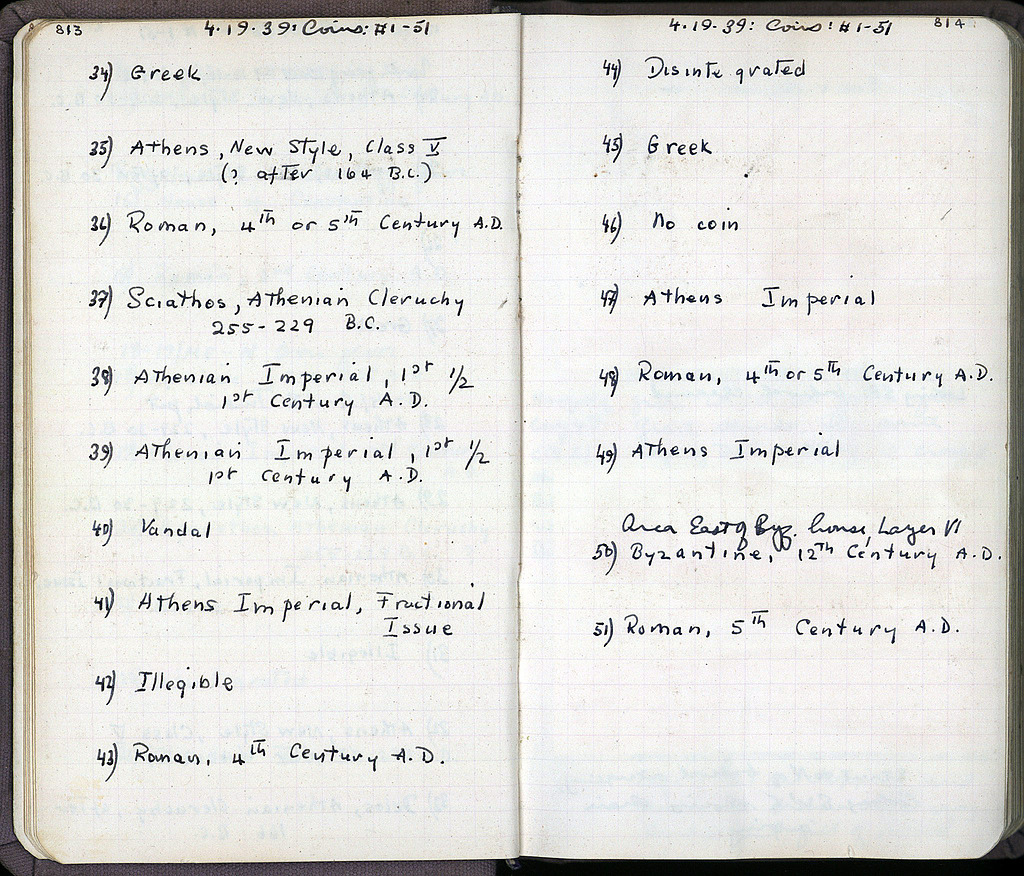 813
4.19.39: Coins: #1-51
34) Greek
35) Athens, New Style, Class V
(? after 164 B.C.)
36) Roman, 4th or 5th Century A.D.
37) Sciathos, Athenian Cleruchy
255-229 B.C.
38) Athenian Imperial, 1st 1/2
1st Century A.D.
39) Athenian Imperial, 1st 1/2
1st Century A.D.
40) Vandal
41) Athens Imperial, Fractional
Issue
42) Illegible
43) Roman, 4th Century A.D.
4.19.39: Coins: #1-51
814
44) Disintegrated
45) Greek
46) No coin
47) Athens Imperial
48) Roman, 4th or 5th Century A.D.
49) Athens Imperial
Area East of Byz. house, Layer VI
50) Byzantine, 12th Century A.D.
51) Roman, 5th Century A.D.